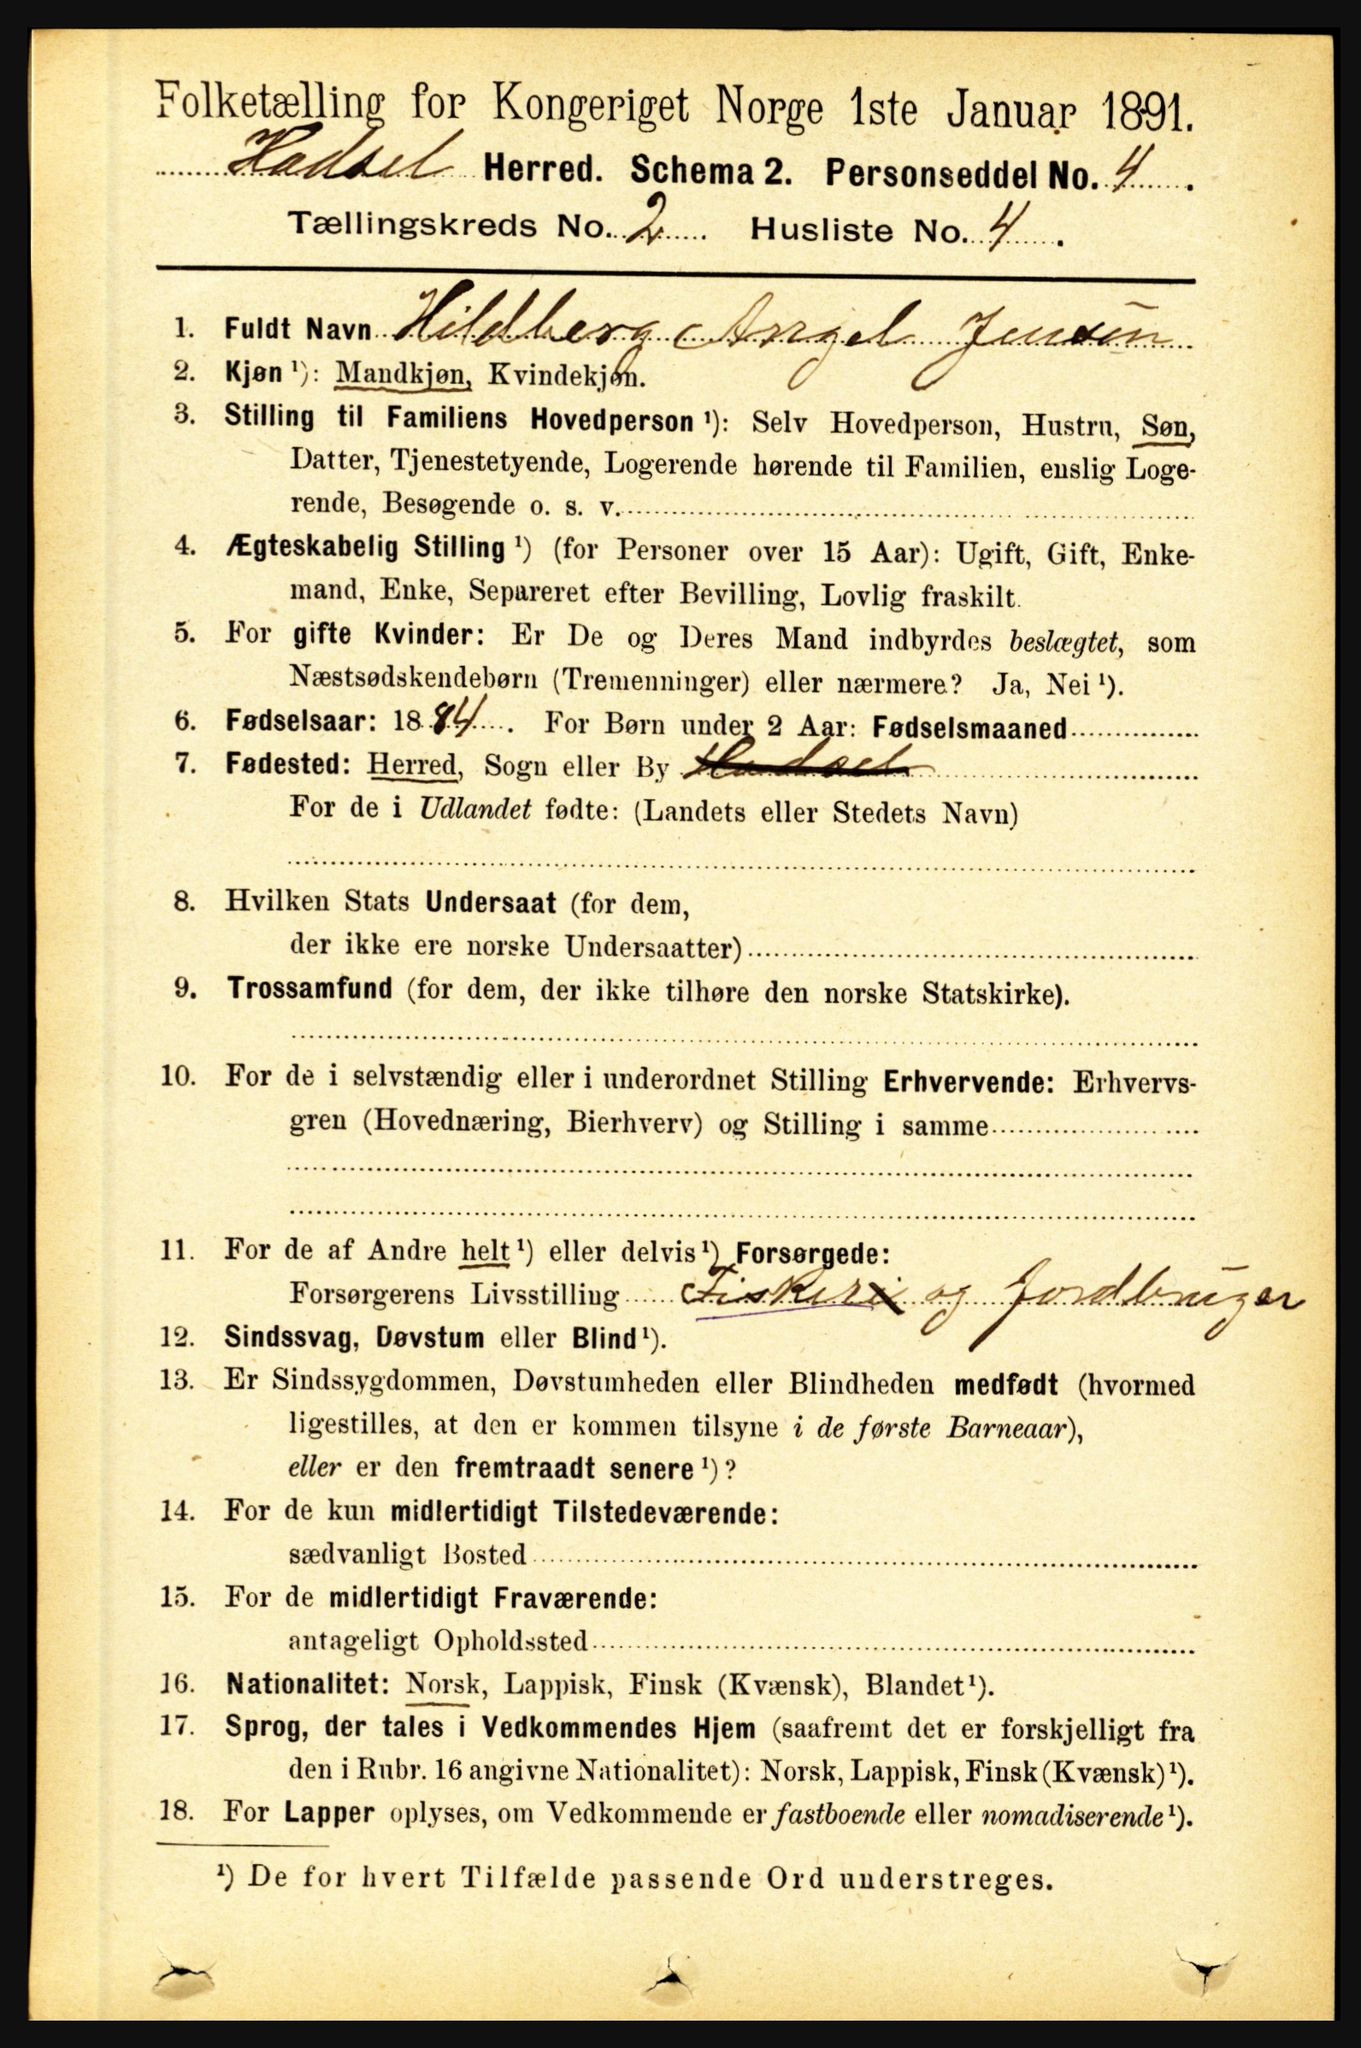 Folketælling for Kongeriget Norge 1ste Januar 1891.
Hadsel Herred. Schema 2. Personseddel No. 4.
Tællingskreds No. 2 Husliste No. 4.
1. Fuldt Navn Hildberg Angel Jensen
2. Kjøn ¹): Mandkjøn, Kvindekjøn.
3. Stilling til Familiens Hovedperson ¹): Selv Hovedperson, Hustru, Søn,
Datter, Tjenestetyende, Logerende hørende til Familien, enslig Loge-
rende, Besøgende o. s. v.
4. Ægteskabelig Stilling ¹) (for Personer over 15 Aar): Ugift, Gift, Enke-
mand, Enke, Separeret efter Bevilling, Lovlig fraskilt.
5. For gifte Kvinder: Er De og Deres Mand indbyrdes beslægtet, som
Næstsødskendebørn (Tremenninger) eller nærmere? Ja, Nei ¹).
6. Fødselsaar: 1884. For Børn under 2 Aar: Fødselsmaaned
7. Fødested: Herred, Sogn eller By Hadsel
For de i Udlandet fødte: (Landets eller Stedets Navn)
8. Hvilken Stats Undersaat (for dem,
der ikke ere norske Undersaatter)
9. Trossamfund (for dem, der ikke tilhøre den norske Statskirke).
10. For de i selvstændig eller i underordnet Stilling Erhvervende: Erhvervs-
gren (Hovednæring, Bierhverv) og Stilling i samme
11. For de af Andre helt ¹) eller delvis ¹) Forsørgede:
Forsørgerens Livsstilling Fiskeri og Jordbruger
12. Sindssvag, Døvstum eller Blind ¹).
13. Er Sindssygdommen, Døvstumheden eller Blindheden medfødt (hvormed
ligestilles, at den er kommen tilsyne i de første Barneaar),
eller er den fremtraadt senere ¹)?
14. For de kun midlertidigt Tilstedeværende:
sædvanligt Bosted
15. For de midlertidigt Fraværende:
antageligt Opholdssted
16. Nationalitet: Norsk, Lappisk, Finsk (Kvænsk), Blandet ¹).
17. Sprog, der tales i Vedkommendes Hjem (saafremt det er forskjelligt fra
den i Rubr. 16 angivne Nationalitet): Norsk, Lappisk, Finsk (Kvænsk) ¹).
18. For Lapper oplyses, om Vedkommende er fastboende eller nomadiserende ¹).
¹) De for hvert Tilfælde passende Ord understreges.